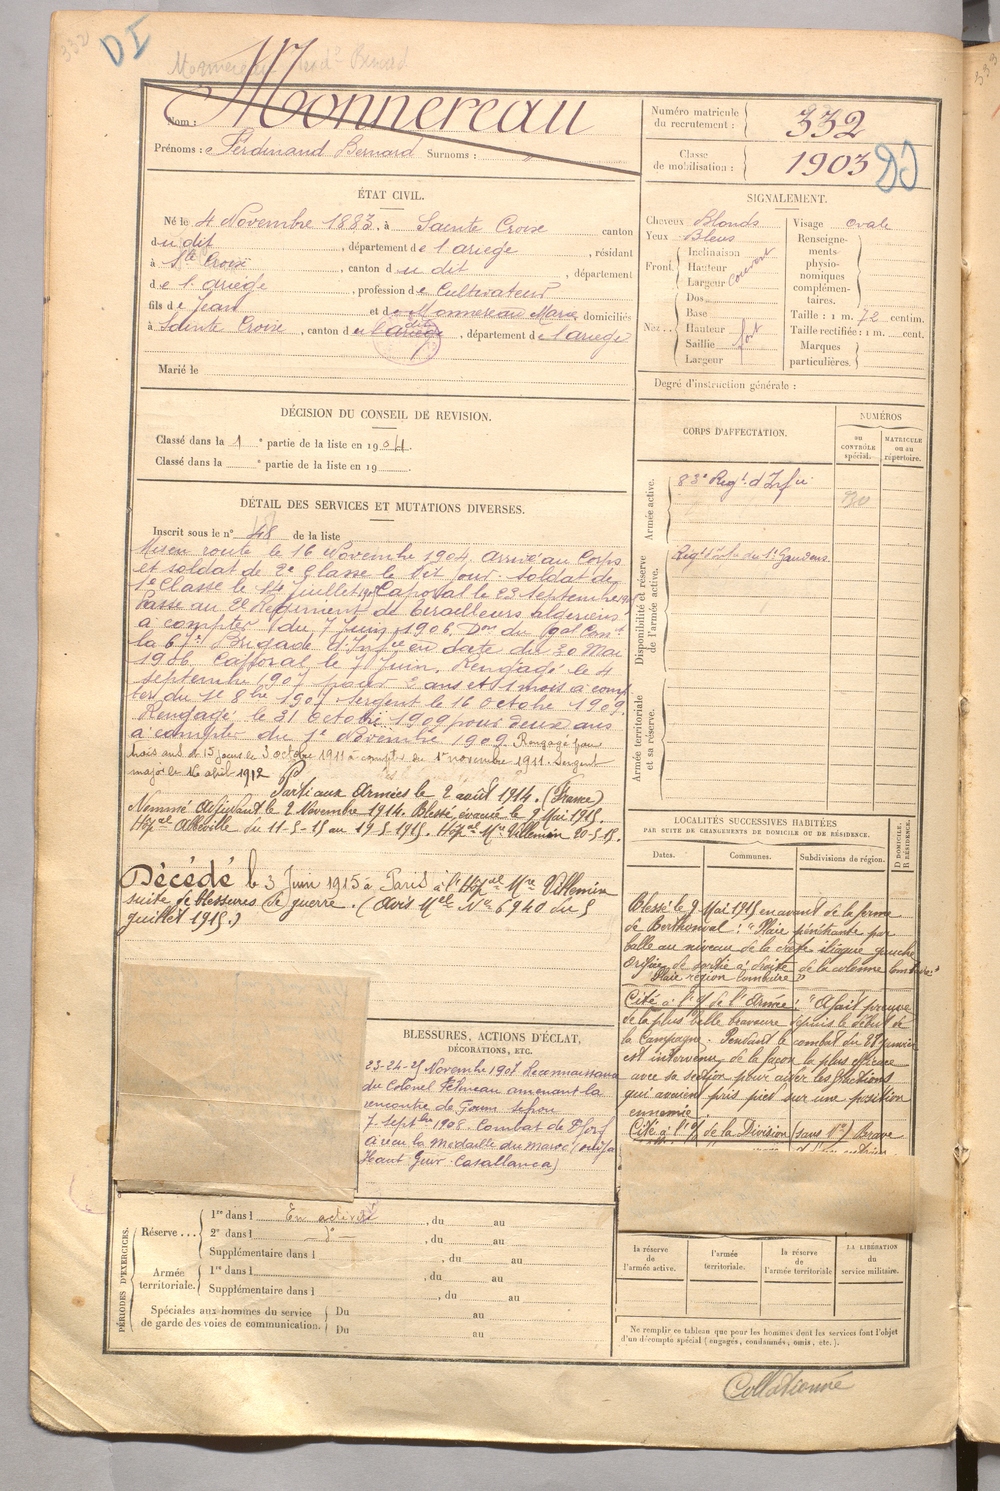 332
DI
Monnereau Ferd. Bernard
Nom : Monnereau
Prénoms : Ferdinand Bernard Surnoms :
Numéro matricule du recrutement : 332
Classe de mobilisation : 1903
DI
ÉTAT CIVIL.
Né le 4 Novembre 1883, à Sainte Croix canton
du dit, département de l'ariège, résidant
à Ste Croix, canton du dit, département
de l'ariège, profession de Cultivateur
fils de Jean et de Monnereau Marie domiciliés
à Sainte Croix, canton du dit, département de l'ariège
Marié le
SIGNALEMENT.
Cheveux Blonds
Yeux Bleus
Front. Inclinaison
Hauteur
Largeur couvert
Nez... Dos
Base
Hauteur fort
Saillie
Largeur
Visage ovale
Renseignements physionomiques complémentaires.
Taille : 1 m. 72 centim.
Taille rectifiée : 1 m. cent.
Marques particulières.
Degré d'instruction générale :
DÉCISION DU CONSEIL DE REVISION.
Classé dans la 1e partie de la liste en 1904.
Classé dans la e partie de la liste en 19
CORPS D'AFFECTATION.
NUMÉROS
au CONTRÔLE spécial.
MATRICULE ou au répertoire.
Armée active.
83e Regt. d'Infie
Disponibilité et réserve de l'armée active.
Regt d'Infie de St Gaudens
Armée territoriale et sa réserve.
DÉTAIL DES SERVICES ET MUTATIONS DIVERSES.
Inscrit sous le n° 48 de la liste
Mis en route le 16 Novembre 1904, arrivé au Corps
et soldat de 2e Classe le dit jour. Soldat de
1e Classe le 14 Juillet 1905 Caporal le 23 Septembre 1905
Passé au 2e Régiment de tirailleurs algériens
à compter du 7 Juin 1906. Don du Gal Comt
la 67e Brigade d'Infie en date du 30 Mai
1906. Caporal le 7 Juin. Rengagé le 4
septembre 1907 pour 2 ans et 1 mois à comp
ter du 1e 8bre 1907 sergent le 16 octobre 1909.
Rengagé le 31 octobre 1909 pour deux ans
à compter du 1e Novembre 1909. Rengagé pour
trois ans et 15 jours le 3 octobre 1911 à compter du 1er novembre 1911. Sergent
major le 16 avril 1912
Parti aux Armées le 2 août 1914. (France)
Nommé Adjudant le 2 Novembre 1914. Blessé, évacué le 9 Mai 1915.
Hôpal Abbeville du 11-5-15 au 19-5-1915. Hôpal Mre Villemin 20-5-15.
Décédé le 3 Juin 1915 à Paris à l'Hôpal Mre Villemin
suite de blessures de guerre. (Avis Mel No 6940 du 5
juillet 1915.)
LOCALITÉS SUCCESSIVES HABITÉES
PAR SUITE DE CHANGEMENTS DE DOMICILE OU DE RÉSIDENCE.
Dates.
Communes.
Subdivisions de région.
D DOMICILE. R RÉSIDENCE.
Blessé le 9 Mai 1915 en avant de la ferme
de Berthonval : "Plaie pénétrante par
balle au niveau de la crête iliaque gauche
Orifice de sortie à droite de la colonne lombaire."
"Plaie région lombaire"
Cité à l'O/ de l'Armée : "A fait preuve
de la plus belle bravoure depuis le début de
la Campagne. Pendant le combat du 28 janvier
est intervenu de la façon la plus efficace
avec sa section pour aider les fractions
qui avaient pris pied sur une position
ennemie"
Cité à l'O/ de la Division (sans No) Brave
BLESSURES, ACTIONS D'ÉCLAT,
DÉCORATIONS, ETC.
23-24-25 Novembre 1907 Reconnaissance
du Colonel amenant la
rencontre de
7 septbre 1908. Combat de
A reçu la Médaille du Maroc
Haut Guir - Casablanca)
PÉRIODES D'EXERCICES.
Réserve... 1re dans l En activité, du au
2e dans l do, du au
Supplémentaire dans l, du au
Armée territoriale. 1re dans l, du au
Supplémentaire dans l, du au
Spéciales aux hommes du service de garde des voies de communication. Du au
Du au
la réserve de l'armée active.
l'armée territoriale.
la réserve de l'armée territoriale
LA LIBÉRATION du service militaire.
Ne remplir ce tableau que pour les hommes dont les services font l'objet
d'un décompte spécial (engagés, condamnés, omis, etc.).
Collationné